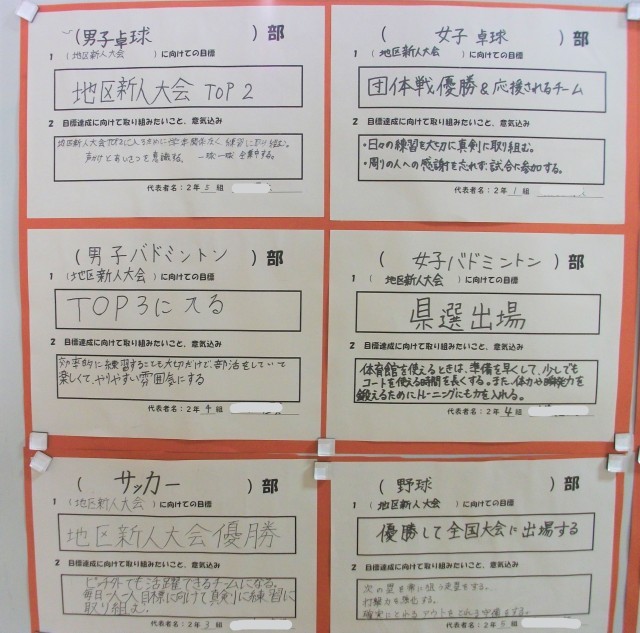 (男子卓球)部
1 (地区新人大会)に向けての目標
地区新人大会 TOP 2
2 目標達成に向けて取り組みたいこと、意気込み
声かけとあいさつを意識する。一球一球集中する。
代表者名:2年3組
(女子 卓球)部
1 (地区新人大会)に向けての目標
団体戦優勝&応援されるチーム
2 目標達成に向けて取り組みたいこと、意気込み
・日々の練習を大切に真剣に取り組む。
・周りの人への感謝を忘れず試合に参加する。
代表者名:2年1組
(男子バドミントン)部
1 (地区新人大会)に向けての目標
TOP3に入る
2 目標達成に向けて取り組みたいこと、意気込み
効率的に練習することも大切だけど、部活をしていて
楽しくて、やりやすい雰囲気にする
代表者名:2年4組
(女子バドミントン)部
1 (地区新人大会)に向けての目標
県選出場
2 目標達成に向けて取り組みたいこと、意気込み
体育館を使えるときは、準備を早くして、少しでも
コートを使える時間を長くする。また、体力や瞬発力を
鍛えるためにトレーニングにも力を入れる。
代表者名:2年4組
(サッカー)部
1 (地区新人大会)に向けての目標
地区新人大会優勝
2 目標達成に向けて取り組みたいこと、意気込み
ピッチ外でも活躍できるチームになる。
毎日一人一人目標に向けて真剣に練習に
取り組む。
代表者名:2年3組
(野球)部
1 (地区新人大会)に向けての目標
優勝して全国大会に出場する
2 目標達成に向けて取り組みたいこと、意気込み
次の塁を常に狙う走塁をする。
打撃力を強化する。
確実にとれるアウトをとれる守備をする。
代表者名:2年5組